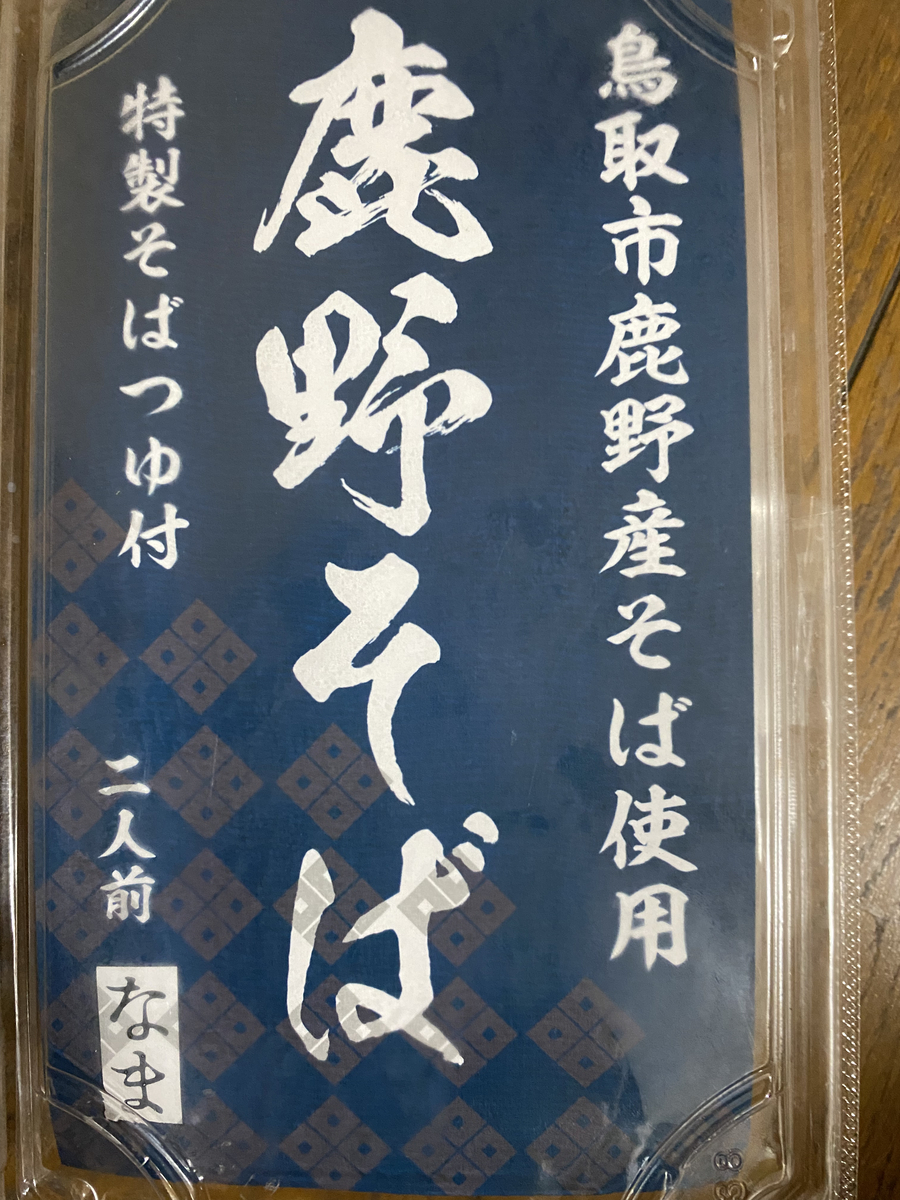 鳥取市鹿野産そば使用
鹿野そば
特製そばつゆ付
二人前
なま